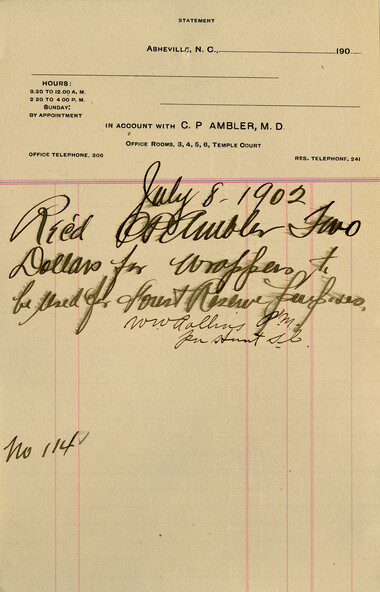 STATEMENT
ASHEVILLE, N. C., 190
HOURS:
9.30 TO 12.00 A. M.
2.30 TO 4.00 P. M.
SUNDAY:
BY APPOINTMENT
IN ACCOUNT WITH C. P. AMBLER, M. D.
OFFICE ROOMS, 3, 4, 5, 6, TEMPLE COURT
OFFICE TELEPHONE, 206
RES. TELEPHONE, 241
July 8 - 1902
Rec'd CP Ambler Two
Dollars for wrappers to
be used for Forest Reserve purposes.
WW Rollins P.M.
Per Hunt
No 114